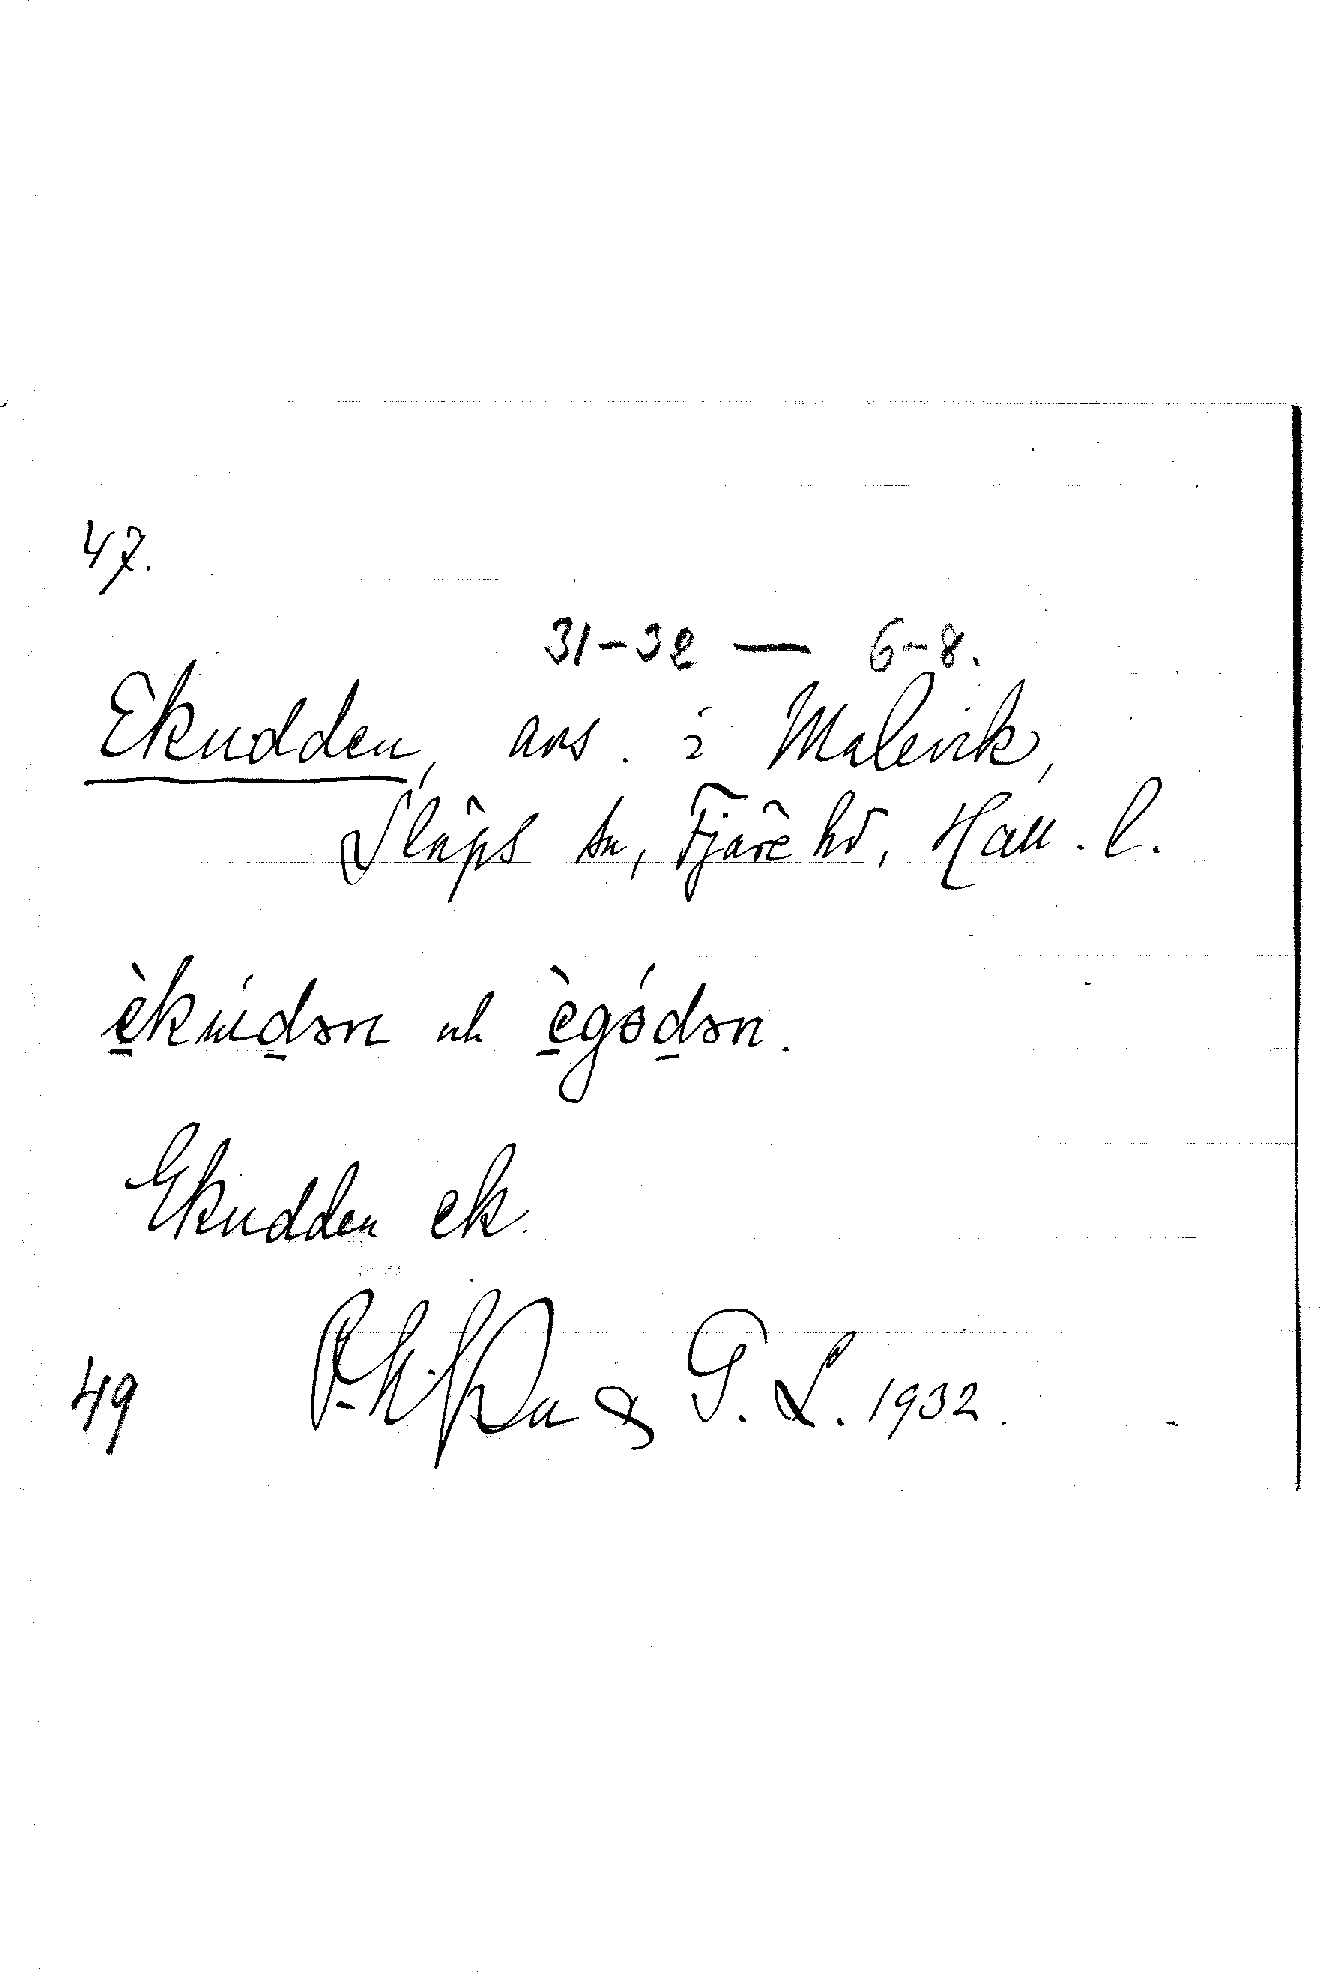 47.
31-32 — 6-8.
Ekudden, avs. i Malevik,
Släps sn, Fjäre hd, Hall. l.
èkúdən och ègódən.
Ekudden ek.
49 & G. L. 1932.